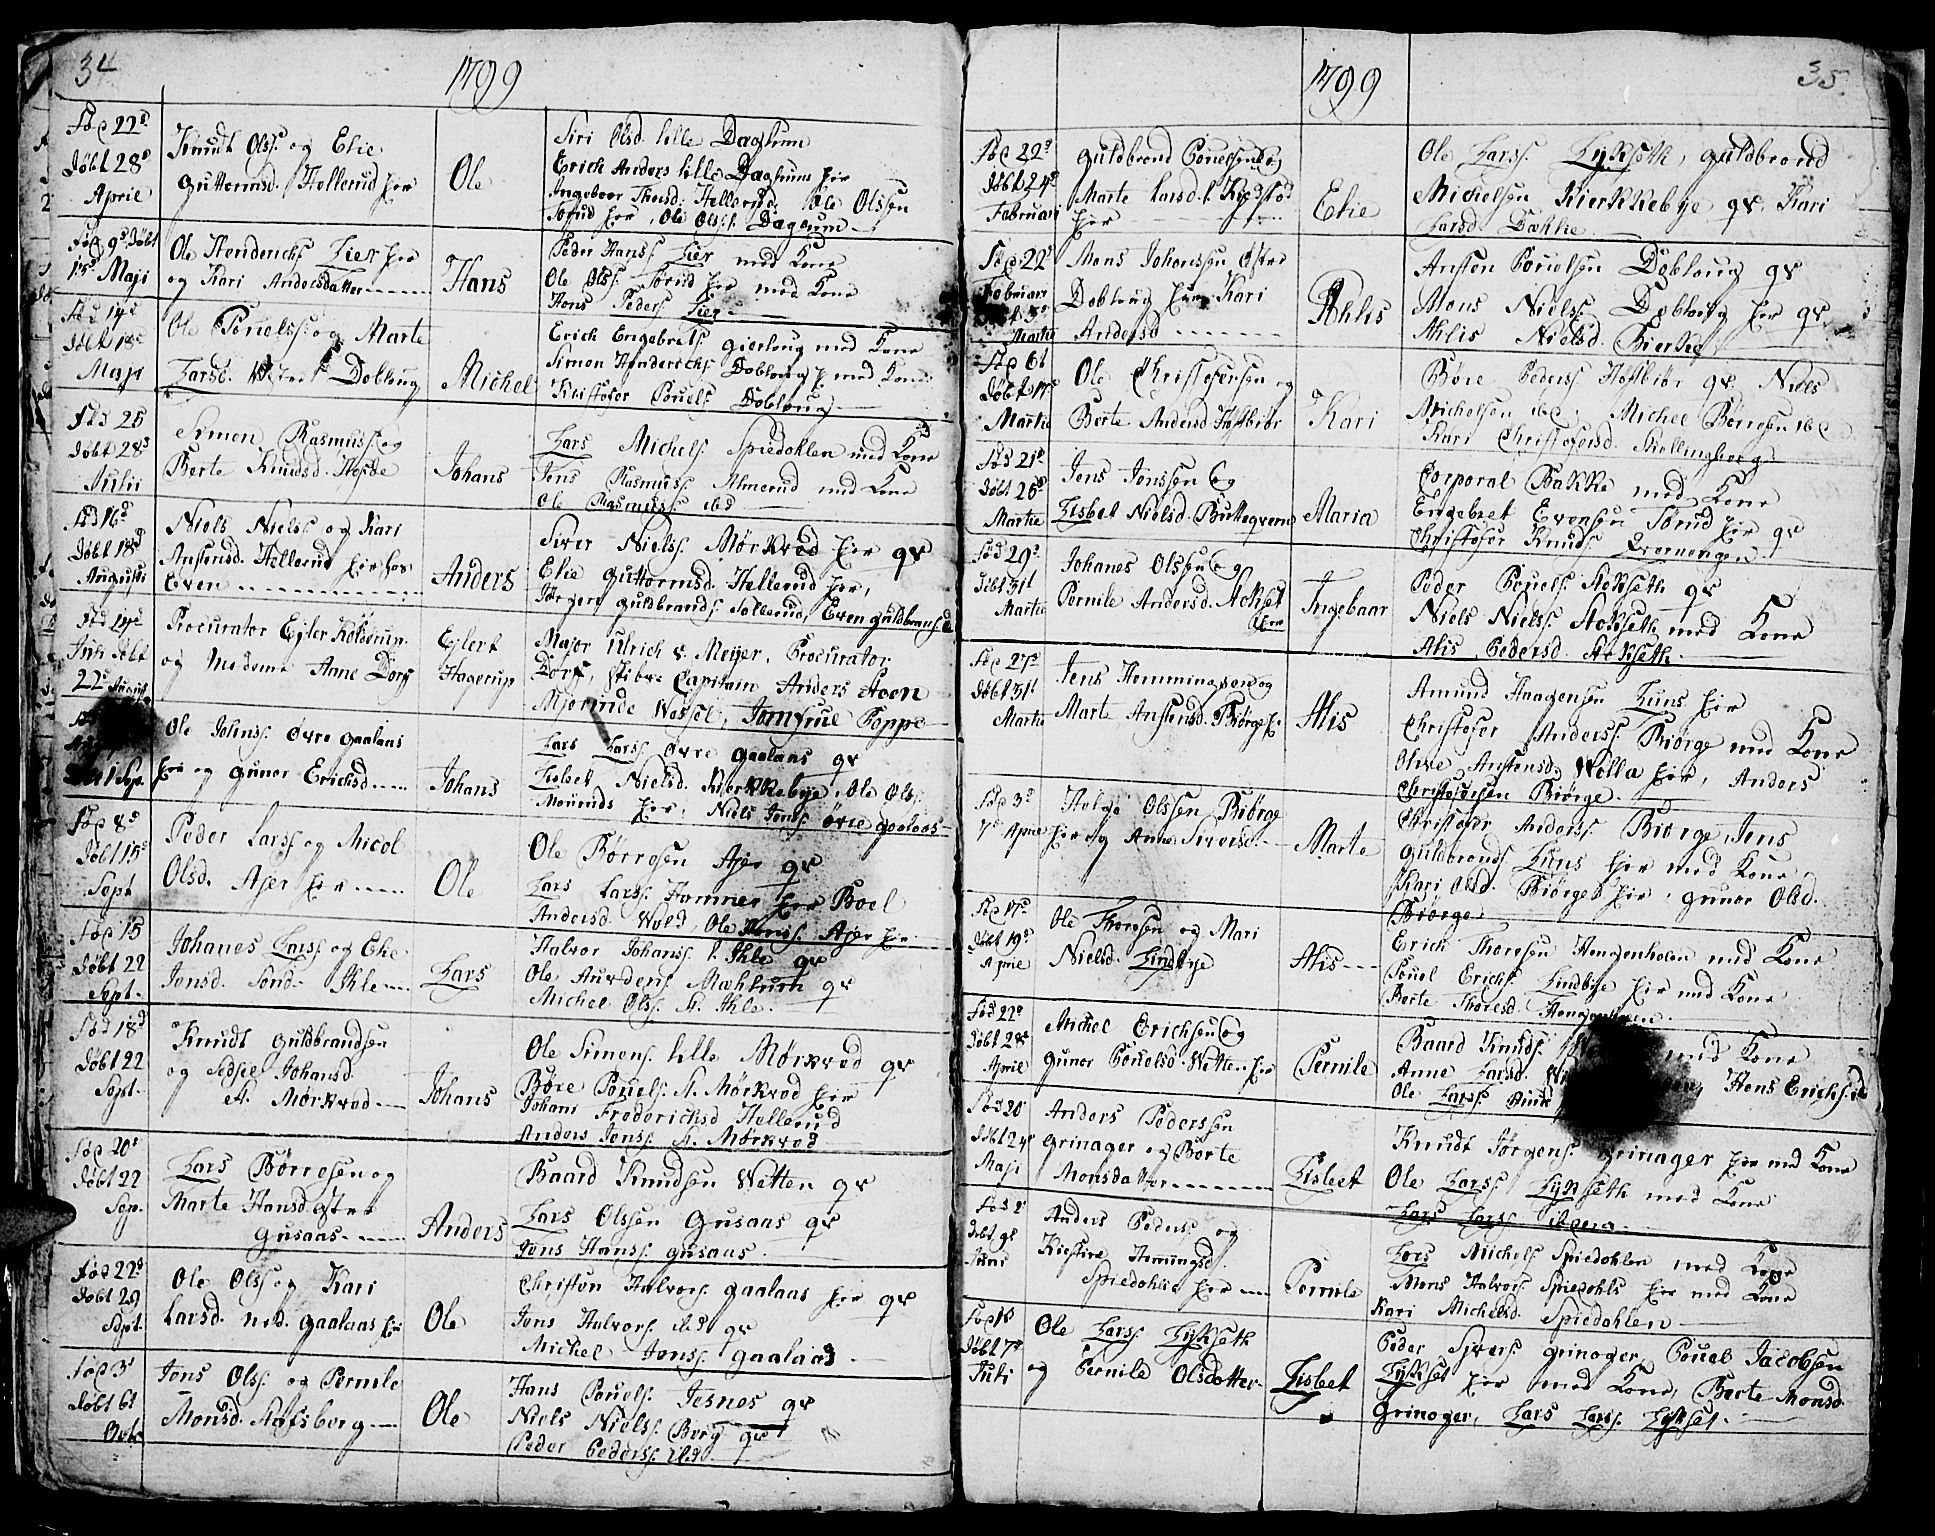 34
1799
Fød 22d
Døbt 28d
April
Knudt Olss. og Elie
Guttormsd. Hellerud her
Ole
Siri Olsd. lille Dagsum
Erich Anders lille Dagsum her
Ingeboer Thorsd. Hellerud, Ole Olssen
Sørud her, Ole Olss. l. Dagsum
Fød 9d Døbt
15d Maji
Ole Henderichs Lier her
og Kari Andersdatter
Hans
Peder Hanss. Lier med Kone
Ole Olss. Sørud her med Kone
Hans Peders. Lier
Fød 14d
Døbt 18d
Maji
Ole Pouelss. og Marte
Larsd. Dobloug
Michel
Erich Engebrets Gierloug med Kone
Simen Henderichs Dobloug med Kone
Christofer Pouels. Dobloug
Fød 25
Døbt 28d
Julii
Simen Rasmuss. og
Berte Knudsd.
Johans
Lars Michels. Spiedahlen med Kone
Jens Rasmuss. Almerud med Kone
Ole Rasmuss. ibd
Fød 16d
Døbt 18d
Augusti
Niels Nielss. og Kari
Anstensd. Hellerud her hos
Even
Anders
Siver Nielss. Mørkved her qv
Elie Guttormsd. Hellerud her,
Jørgen Guldbrands. Sollerud, Even Guldbrands.
Fød 14d
Juli døbt
22d August
Procurator Ejler Kolderup
og Madame Anne Dorf
Ejlert
Hagerup
Major Ulrich v. Meyer, Procurator
Dorf, Capitain Anders Steen
Majorinde Wessel, Jomfrue Poppe
1 Sep.
Ole Johns. Øvre Gaalaas
her og Gunor Ericksd.
Johans
Lars Larss. Øvre Gaalaas qv
Lisbet Nielsd. Kierkkebye, Ole Olss.
her, Niels Jens. Øvre Gaalaas
Fød 8d
Døbt 15d
Sept
Peder Larss. og Nicol
Olsd. Ajer her
Ole
Ole Børresen Ajer qv
Lars Larss. Hammer her Boel
Andersd. Wold, Ole Hanss. Ajer her
Fød 15
Døbt 22
Sept.
Johanes Larss. og Elie
Jensd. Sønd. Ihle
Lars
Halvor Johans. l. Ihle qv
Ole Aurdens. Mæhlum qv
Michel Olss. N. Ihle.
Fød 18d
Døbt 22
Sept.
Knudt Guldbrandsen
og Sidsel Johansd.
N. Mørkved
Johans
Ole Simens. lille Mørkved qv
Børe Pouels. N. Mørkved her
Johans Frederichsd Hellerud
Anders Jens. N. Mørkved
Fød 20d
Døbt 22
Sep.
Lars Børresen og
Marte Hansd. Østre
Gusaas
Anders
Baard Knudsen Wetten qv
Lars Olssen Gusaas qv
Jens Hanss. Gusaas.
Fød 22d
Døbt 29
Sept.
Ole Olss. og Kari
Larsd. ned. Gaalaas her
Ole
Christen Halvors. Gaalaas her qv
Jens Halvors. ibd qv
Michel Jenss. Gaalaas
Fød 3d
Døbt 6t
Octb
Jens Olss. og Pernile
Monsd. Hafsberg
Ole
Hans Pouels. Jesnes qv
Niels Nielss. Berg qv
Peder Pederss. ibd
35.
1799
Fød 22d
Døbt 24d
Februari
Guldbrand Pouelsen og
Marte Larsd. l. Kyedstad
her
Elie
Ole Larss. Lykseth, Guldbrand
Michelsen Kierkkebye qv. Kari
Larsd. Dæhlie
Fød 22d
Februari
Martii
Mons Johanssen Østre
Dobloug her Kari
Andersd
Ahlis
Ansten Pouelsen Dobloug qv
Mons Nielss. Dobloug her qv
Ahlis Nielsd. Bierke
Fød 6t
Døbt 17
Martii
Ole Christofersen og
Berte Andersd. Hofbrør
Kari
Børe Peders. Hofbrør qv. Niels
Michelsen ibd, Michel Børresen ibd
Kari Christofersd. Skellingberg
Fød 21d
Døbt 25d
Martii
Jens Jenssen og
Lisbet Nielsd. Buttegvern
Maria
Corporal Bakke med Kone
Engebret Evensen Sørud her qv
Christofer Knuds. Qvernengen
Fød 29d
Døbt 31t
Martii
Johanes Olssen og
Pernile Andersd. Aokset
her
Ingebaar
Peder Pouels. Aokseth qv
Niels Nielss. Aokseth med Kone
Alis Pedersd. Aokseth.
Fød 27d
Døbt 31t
Martii
Jens Hemmingsen og
Marte Anstensd. Biørge her
Alis
Amund Haagensen Luns her
Christofer Anderss. Biørge med Kone
Olive Anstensd. Wølla her, Anders
Christofersen Biørge.
Fød 3d
7d April
Helge Olssen Biørge
her og Anne Siversd.
Marte
Christofer Anderss. Biørge, Jens
Guldbrands Luns her med Kone
Kari Olsd. Biørge her, Gunor Olsd.
Biørge
Fød 17d
Døbt 19d
April
Ole Thoresen og Mari
Nielsd. Lindbye
Alis
Erich Thoresen Hengenholen med Kone
Pouel Erichs. Lindbye her med Kone
Berte Thoresd. Hengenholen.
Fød 22d
Døbt 28d
April
Michel Erichsen og
Gunor Pouelsd. Wetten her
Pernile
Baard Knuds. med Kone
Anne Larsd. Hans Erichs. ibd
Ole Larss.
Fød 20
Døbt 24
Maji
Anders Pederssen
Grinager og Berte
Monsdatter
Lisbeet
Knudt Jørgens. Grinager her med Kone
Ole Larss. Lykseth med Kone
Lars Larss. ibidem
Fød 2
Døbt 9d
Juni
Anders Peders. og
Kiestine Hemingsd.
Spiedahlen her
Pernile
Lars Michels Spiedahlen med Kone
Mons Halvors. Spiedahlen her med Kone
Kari Michelsd. Spiedahlen
Fød 1d
Døbt 7d
Juli
Ole Larss. Lykseth
og Pernile Olsdatter
Lisbeet
Peder Sivers. Grinager, Pouel Jacobsen
Lykset her med Kone, Berte Monsd.
Grinager, Lars Larss. Lykset.